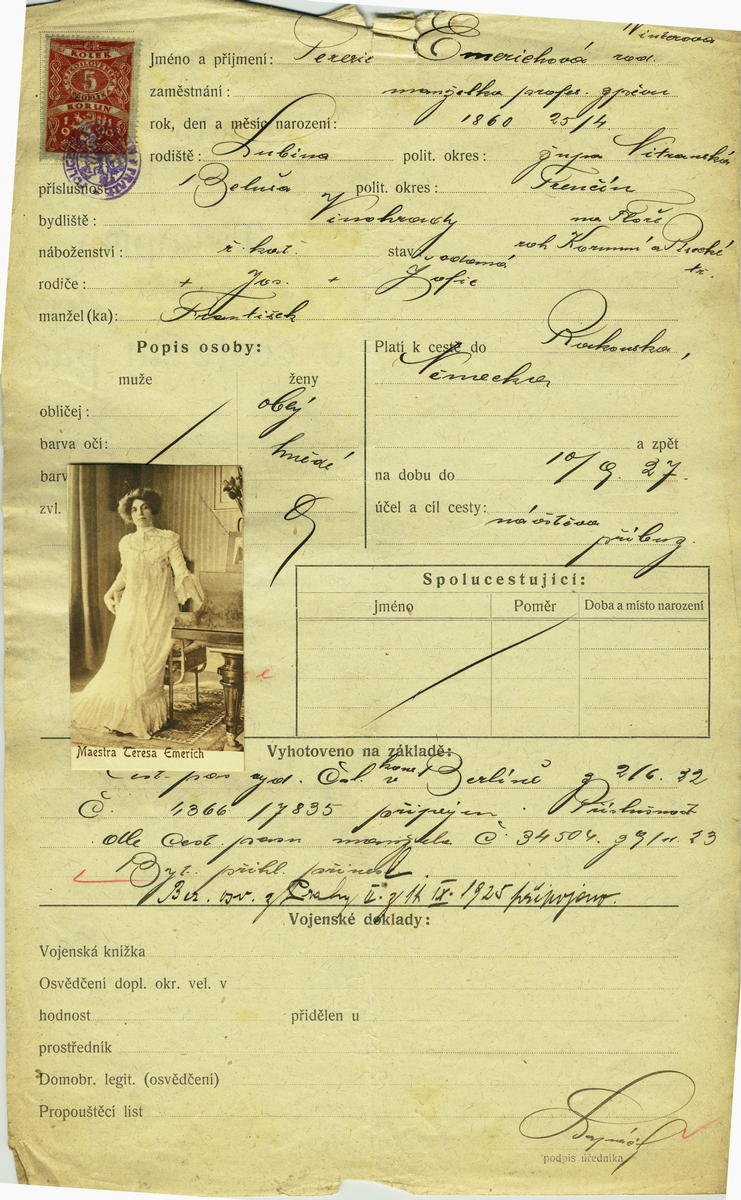 Winterova
KOLEK
5
KORUN
Jméno a příjmení: Terezie Emerichová roz.
zaměstnání: manželka profes. zpěvu
rok, den a měsíc narození: 1860 25/4
rodiště: Lubina polit. okres: župa Nitranská
příslušnost Beluša polit. okres: Trenčín
bydliště: Vinohrady
náboženství: ř. kat. stav: vdaná
roh Korunní a
tř.
rodiče: + Jos. + Žofie
manžel (ka): František
Popis osoby:
muže ženy
obličej: oblý
barva očí: hnědé
barv
zvl.
Platí k cestě do Rakouska,
Německa
a zpět
na dobu do 10/9. 27.
účel a cíl cesty: návštěva
příbuz.
Spolucestující:
Jméno Poměr Doba a místo narození
Maestra Teresa Emerich
Vyhotoveno na základě:
Cest. pas vyd. Čsl. v Berlíně z 2/6. 22
Č. 4366 / 7835 připojen. Příslušnost
dle cest. pasu manžela Č. 34504. z 9/11. 23
Byt. přihl. přinesl
Bez. osv. z Prahy II. z 11 IX. 1925 připojeno.
Vojenské doklady:
Vojenská knížka
Osvědčení dopl. okr. vel. v
hodnost přidělen u
prostředník
Domobr. legit. (osvědčení)
Propouštěcí list
podpis úředníka